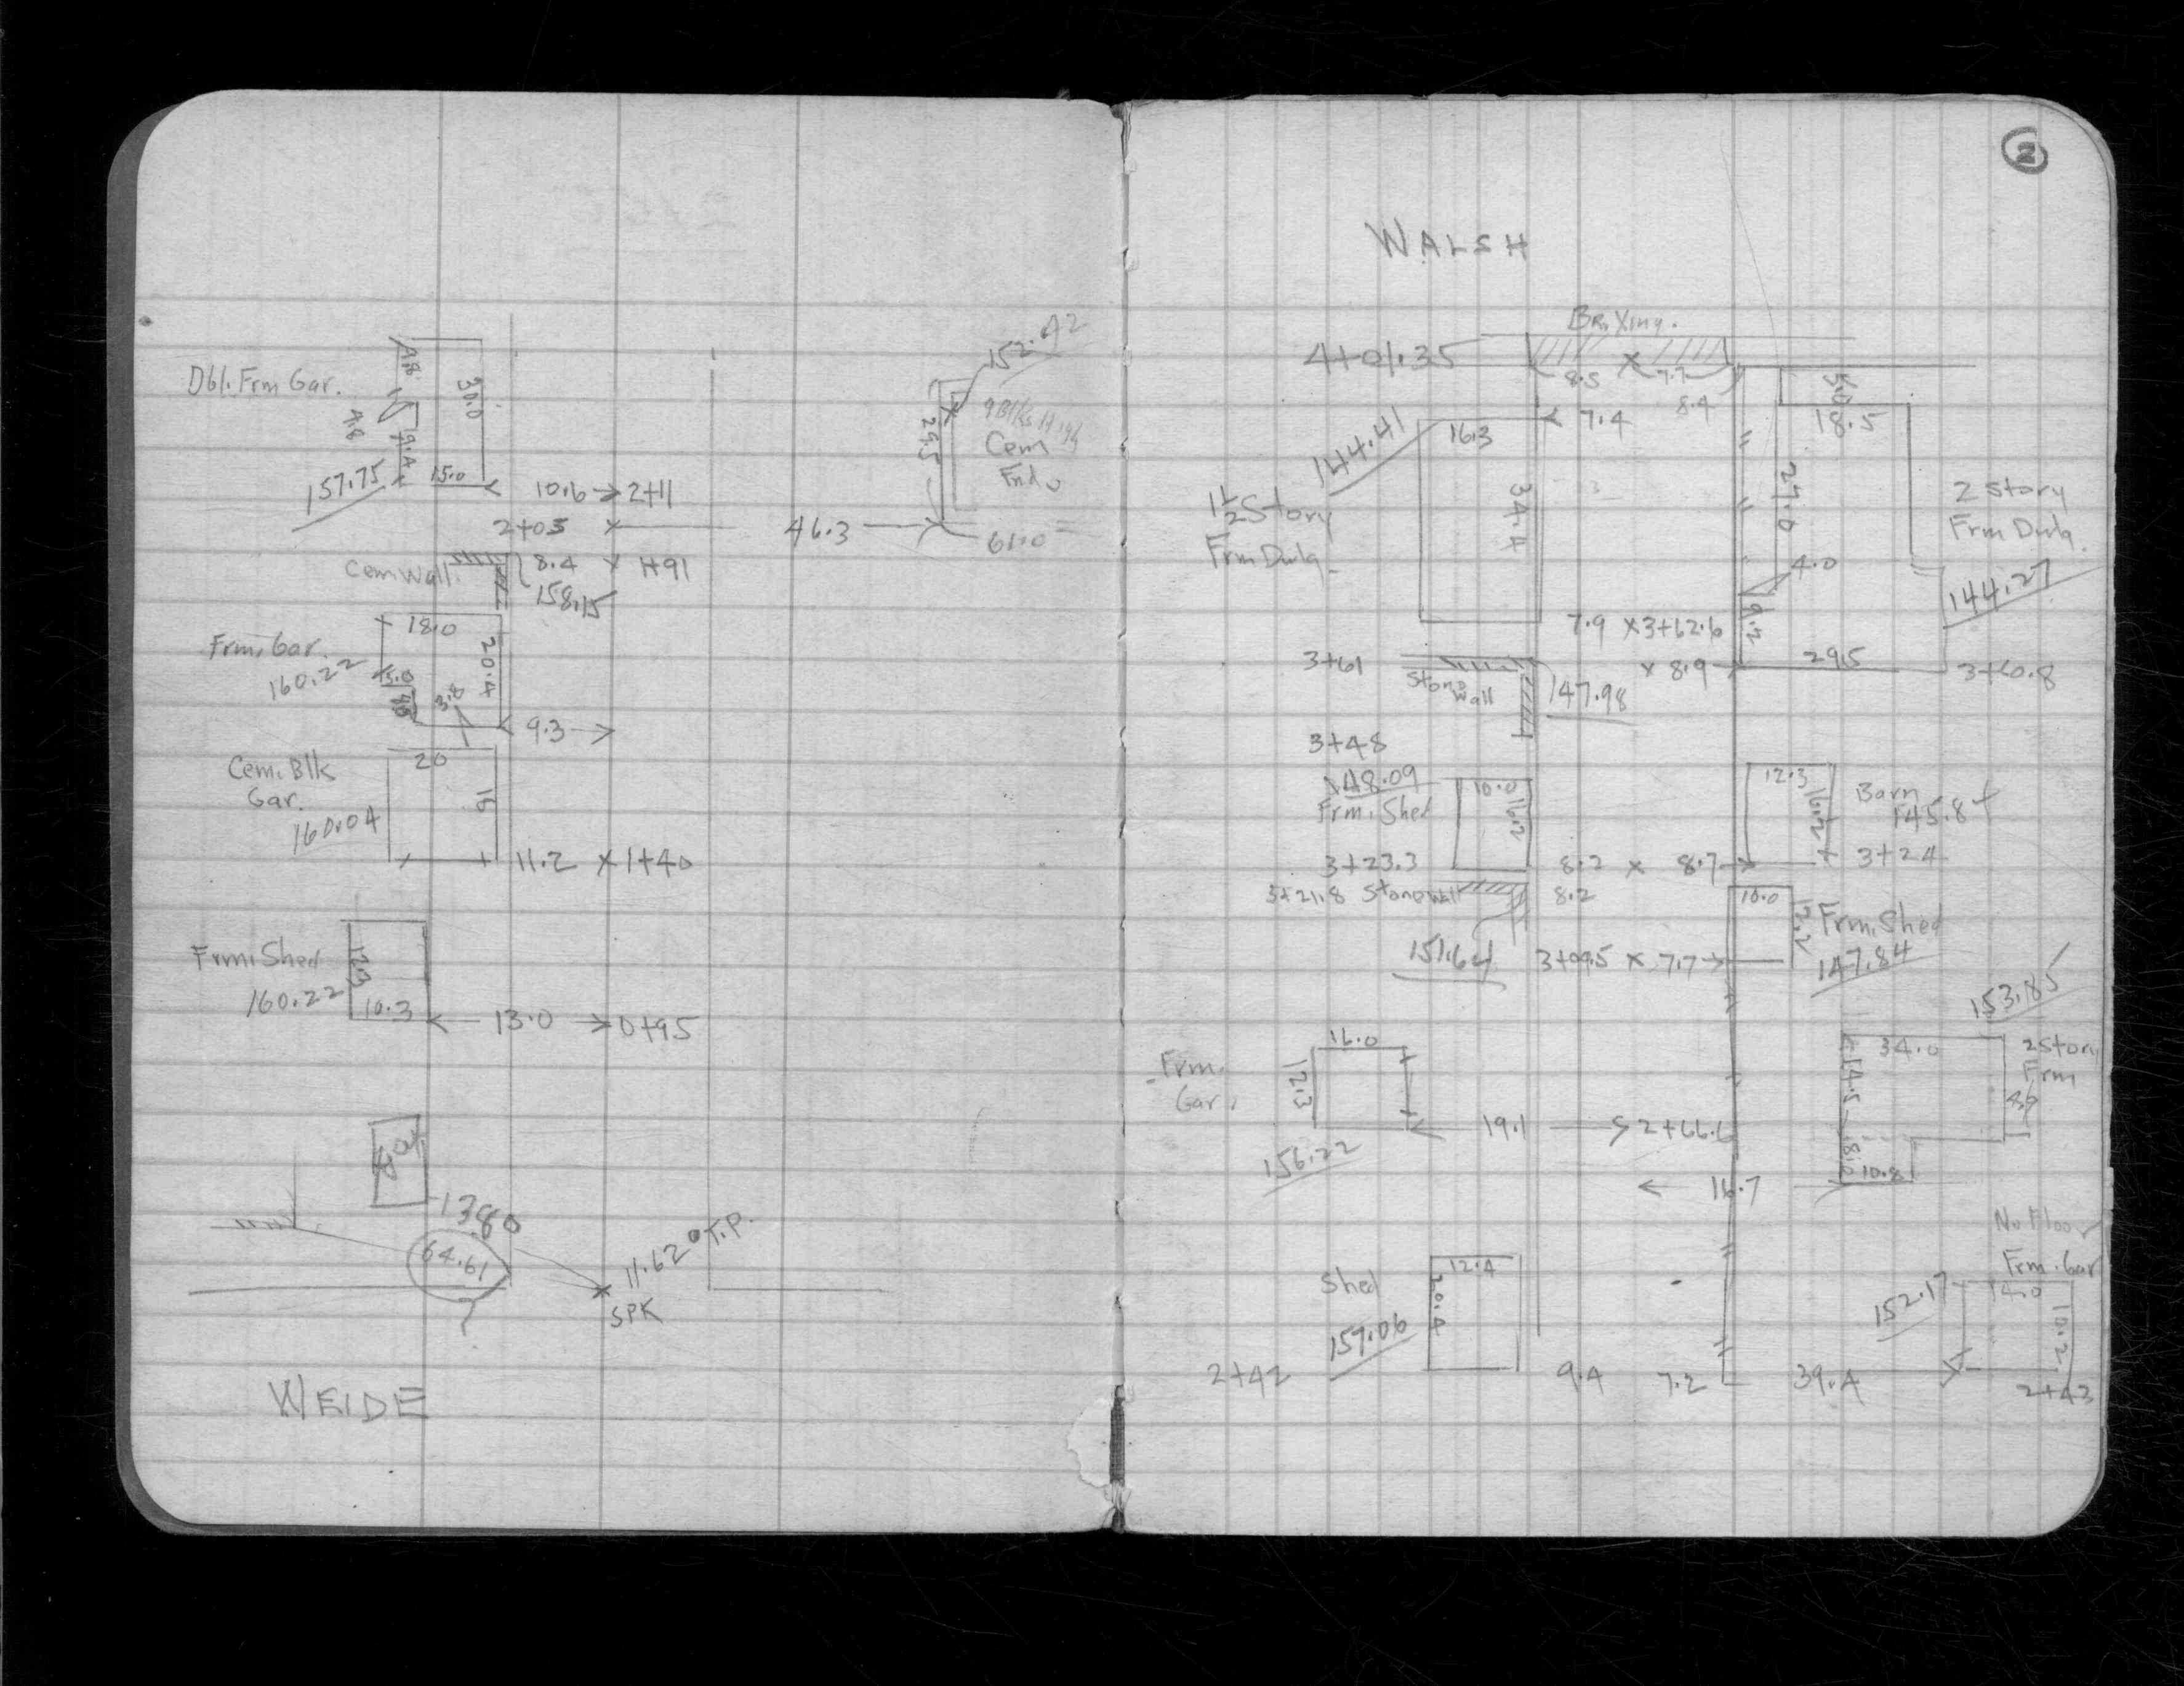 152.42
Dbl. Frm Gar.
30.0
4.8
9.4
9 Blks High
29.5
Cem
Fnd.
157.75
15.0
10.6 → 2+11
2+03 × 46.3
61.0
Cem Wall
8.4 × 1+91
158.15
18.0
Frm. Gar.
160.22
20.4
9.3 →
Cem. Blk
Gar.
160.04
20
16
11.2 × 1+40
Frm. Shed
160.22
12.3
10.3
13.0 → 0+95
64.61
11.62 T.P.
SPK
WEIDE
2
WALSH
Br. Xing.
4+01.35
8.5 × 7.7
8.4
7.4
144.41
16.3
34.4
1½ Story
Frm Dwlg.
5.0
18.5
27.0
2 Story
Frm Dwlg.
4.0
144.27
7.9 × 3+62.6
9.2
3+61
Stone
Wall
147.98
× 8.9
29.5
3+60.8
3+48
148.09
Frm. Shed
10.0
16.2
12.3
16.2
Barn
145.8
3+23.3
8.2 × 8.7
3+24
3+21.8 Stone Wall
8.2
10.0
12.2
Frm. Shed
147.84
151.64
3+09.5 × 7.7 →
153.85
Frm.
Gar.
16.0
12.3
19.1
2+66.6
156.22
34.0
14.5
2 Story
Frm
8.0
10.8
← 16.7
No Floor
Frm. Gar
Shed
12.4
20.4
157.06
152.17
14.0
10.2
2+42
9.4
7.2
39.4
2+43